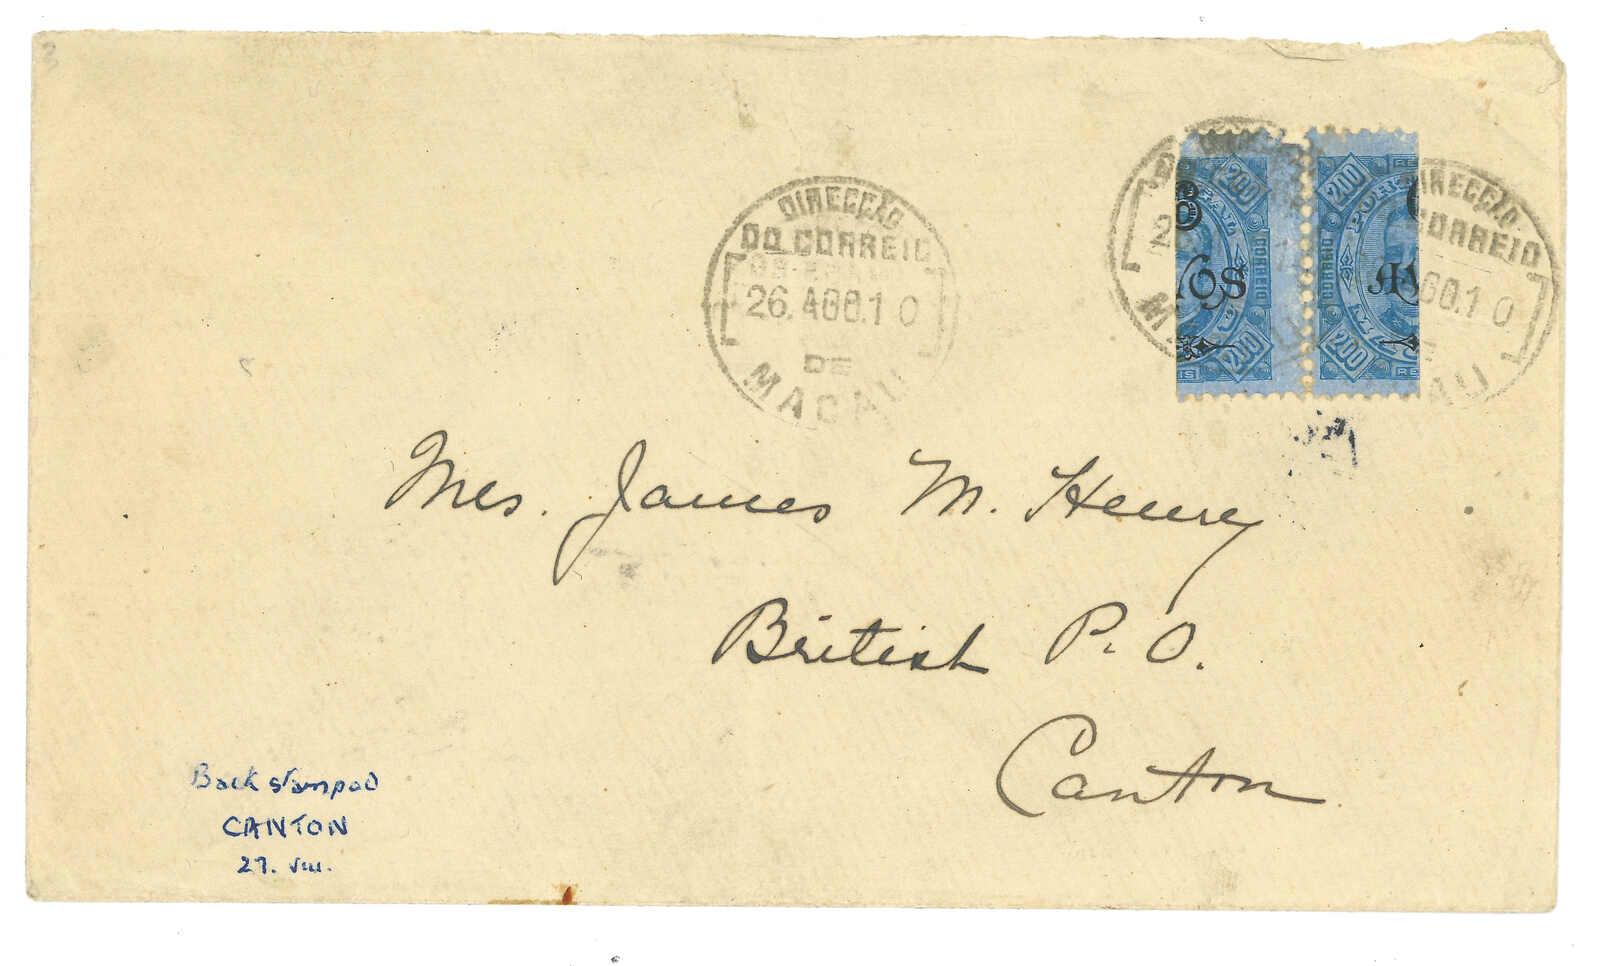 DIRECÇÃO
DO CORREIO
26.AGO.10
DE
MACAU
DIRECÇÃO
CORREIO
GO.10
AU
200
200
CORREIO
200
200
CORREIO
REIS
Mrs. James M. Henry
British P. O.
Canton
Back stamped
CANTON
27. viii.